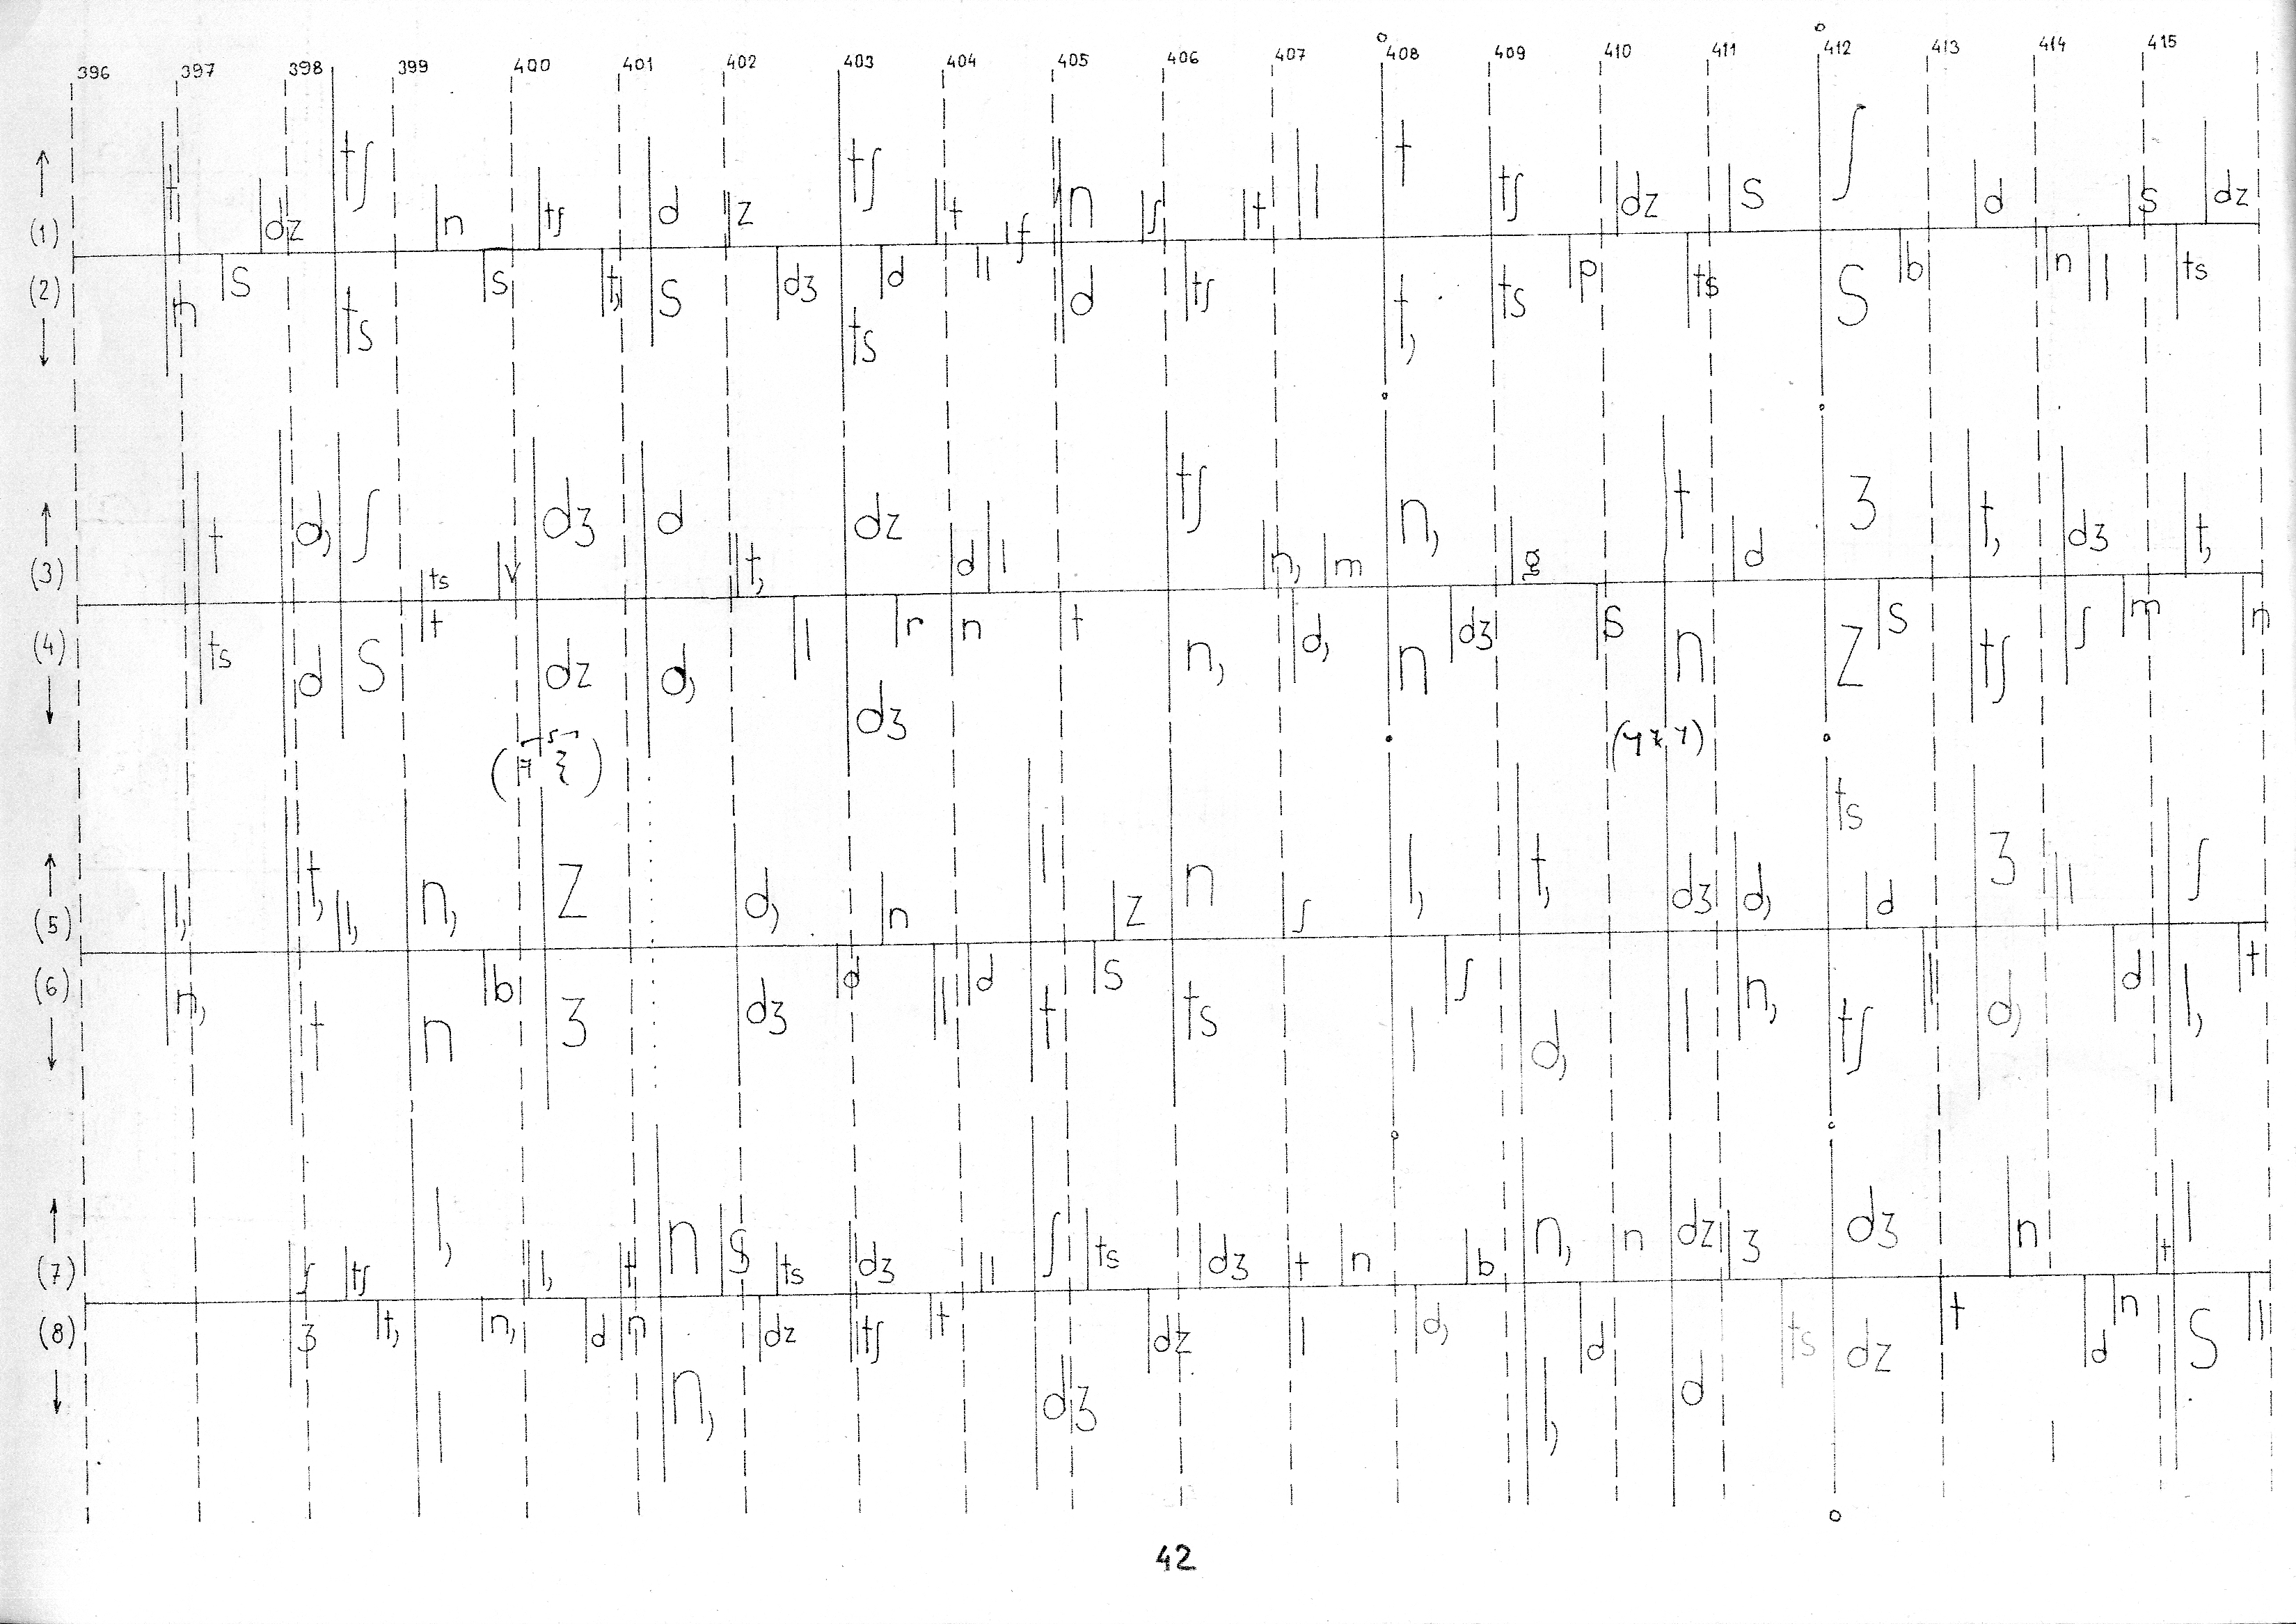 396 397 398 399 400 401 402 403 404 405 406 407 408 409 410 411 412 413 414 415
(1) t dz tʃ n tʃ d z tʃ t f n ʃ t l t tʃ dz s ʃ d s dz
(2) n s ts s t, s dʒ ts d l d tʃ t, ts p ts s b n l ts
(3) t d, ʃ ts v dʒ d t, dz d l tʃ n, m n, g t d ʒ t, dʒ t,
(4) ts d s t dz d, l dʒ r n t n, d, n dʒ s n z s tʃ ʃ m n
(5) l, t, l, n, z d, n l z n ʃ l, t, dʒ d, ts d ʒ l ʃ
(6) n, t n b ʒ dʒ d l d t s ts l ʃ d, l n, tʃ l d, d l, t
(7) ʃ tʃ l, l, t n s ts dʒ l ʃ ts dʒ t n b n, n dz ʒ dʒ n t l
(8) ʒ t, l n, d n n, dz tʃ t dʒ dz l d, l, d d ts dz t d n s l
42